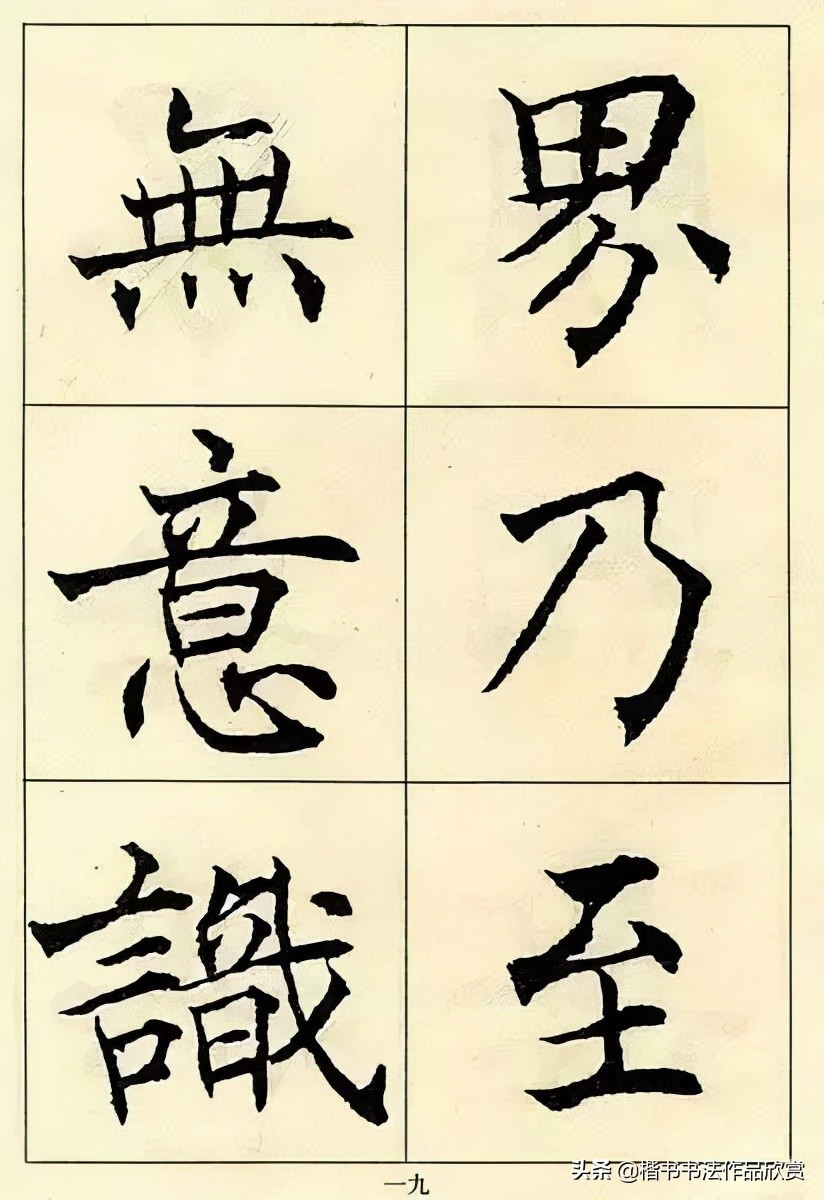 界乃至
無意識
一九
头条 @楷书书法作品欣赏